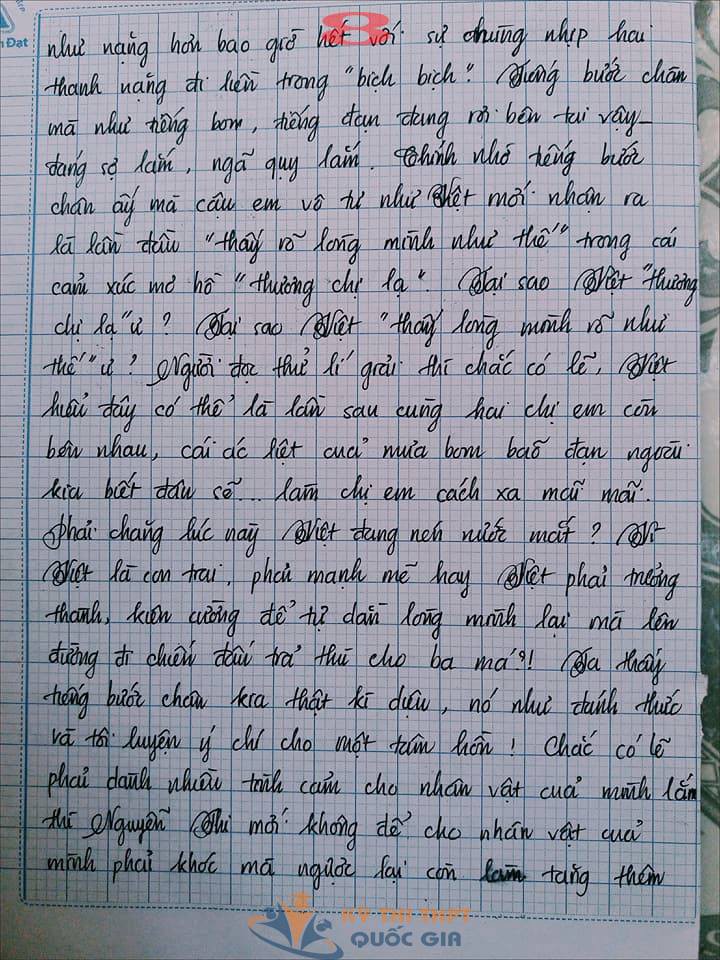 Đạt
8
như nặng hơn bao giờ hết với sự chùng nhịp hai
thanh nặng đi liền trong "bịch bịch". Tiếng bước chân
mà như tiếng bom, tiếng đạn đang rơi bên tai vậy -
đáng sợ lắm, ngã quỵ lắm. Chính nhờ tiếng bước
chân ấy mà cậu em vô tư như Việt mới nhận ra
là lần đầu "thấy rõ lòng mình như thế" trong cái
cảm xúc mơ hồ "thương chị lạ". Tại sao Việt "thương
chị lạ" ư? Tại sao Việt "thấy lòng mình rõ như
thế" ư? Người đọc thử lí giải thì chắc có lẽ, Việt
hiểu đây có thể là lần sau cùng hai chị em còn
bên nhau, cái ác liệt của mưa bom bão đạn ngoài
kia biết đâu sẽ... làm chị em cách xa mãi mãi.
Phải chăng lúc này Việt đang nén nước mắt? Vì
Việt là con trai, phải mạnh mẽ hay Việt phải trưởng
thành, kiên cường để tự dằn lòng mình lại mà lên
đường đi chiến đấu trả thù cho ba má?! Ta thấy
tiếng bước chân kia thật kì diệu, nó như đánh thức
và tôi luyện ý chí cho một tâm hồn! Chắc có lẽ
phải dành nhiều tình cảm cho nhân vật của mình lắm
thì Nguyễn Thi mới không để cho nhân vật của
mình phải khóc mà ngược lại còn làm tăng thêm
KỲ THI THPT
QUỐC GIA